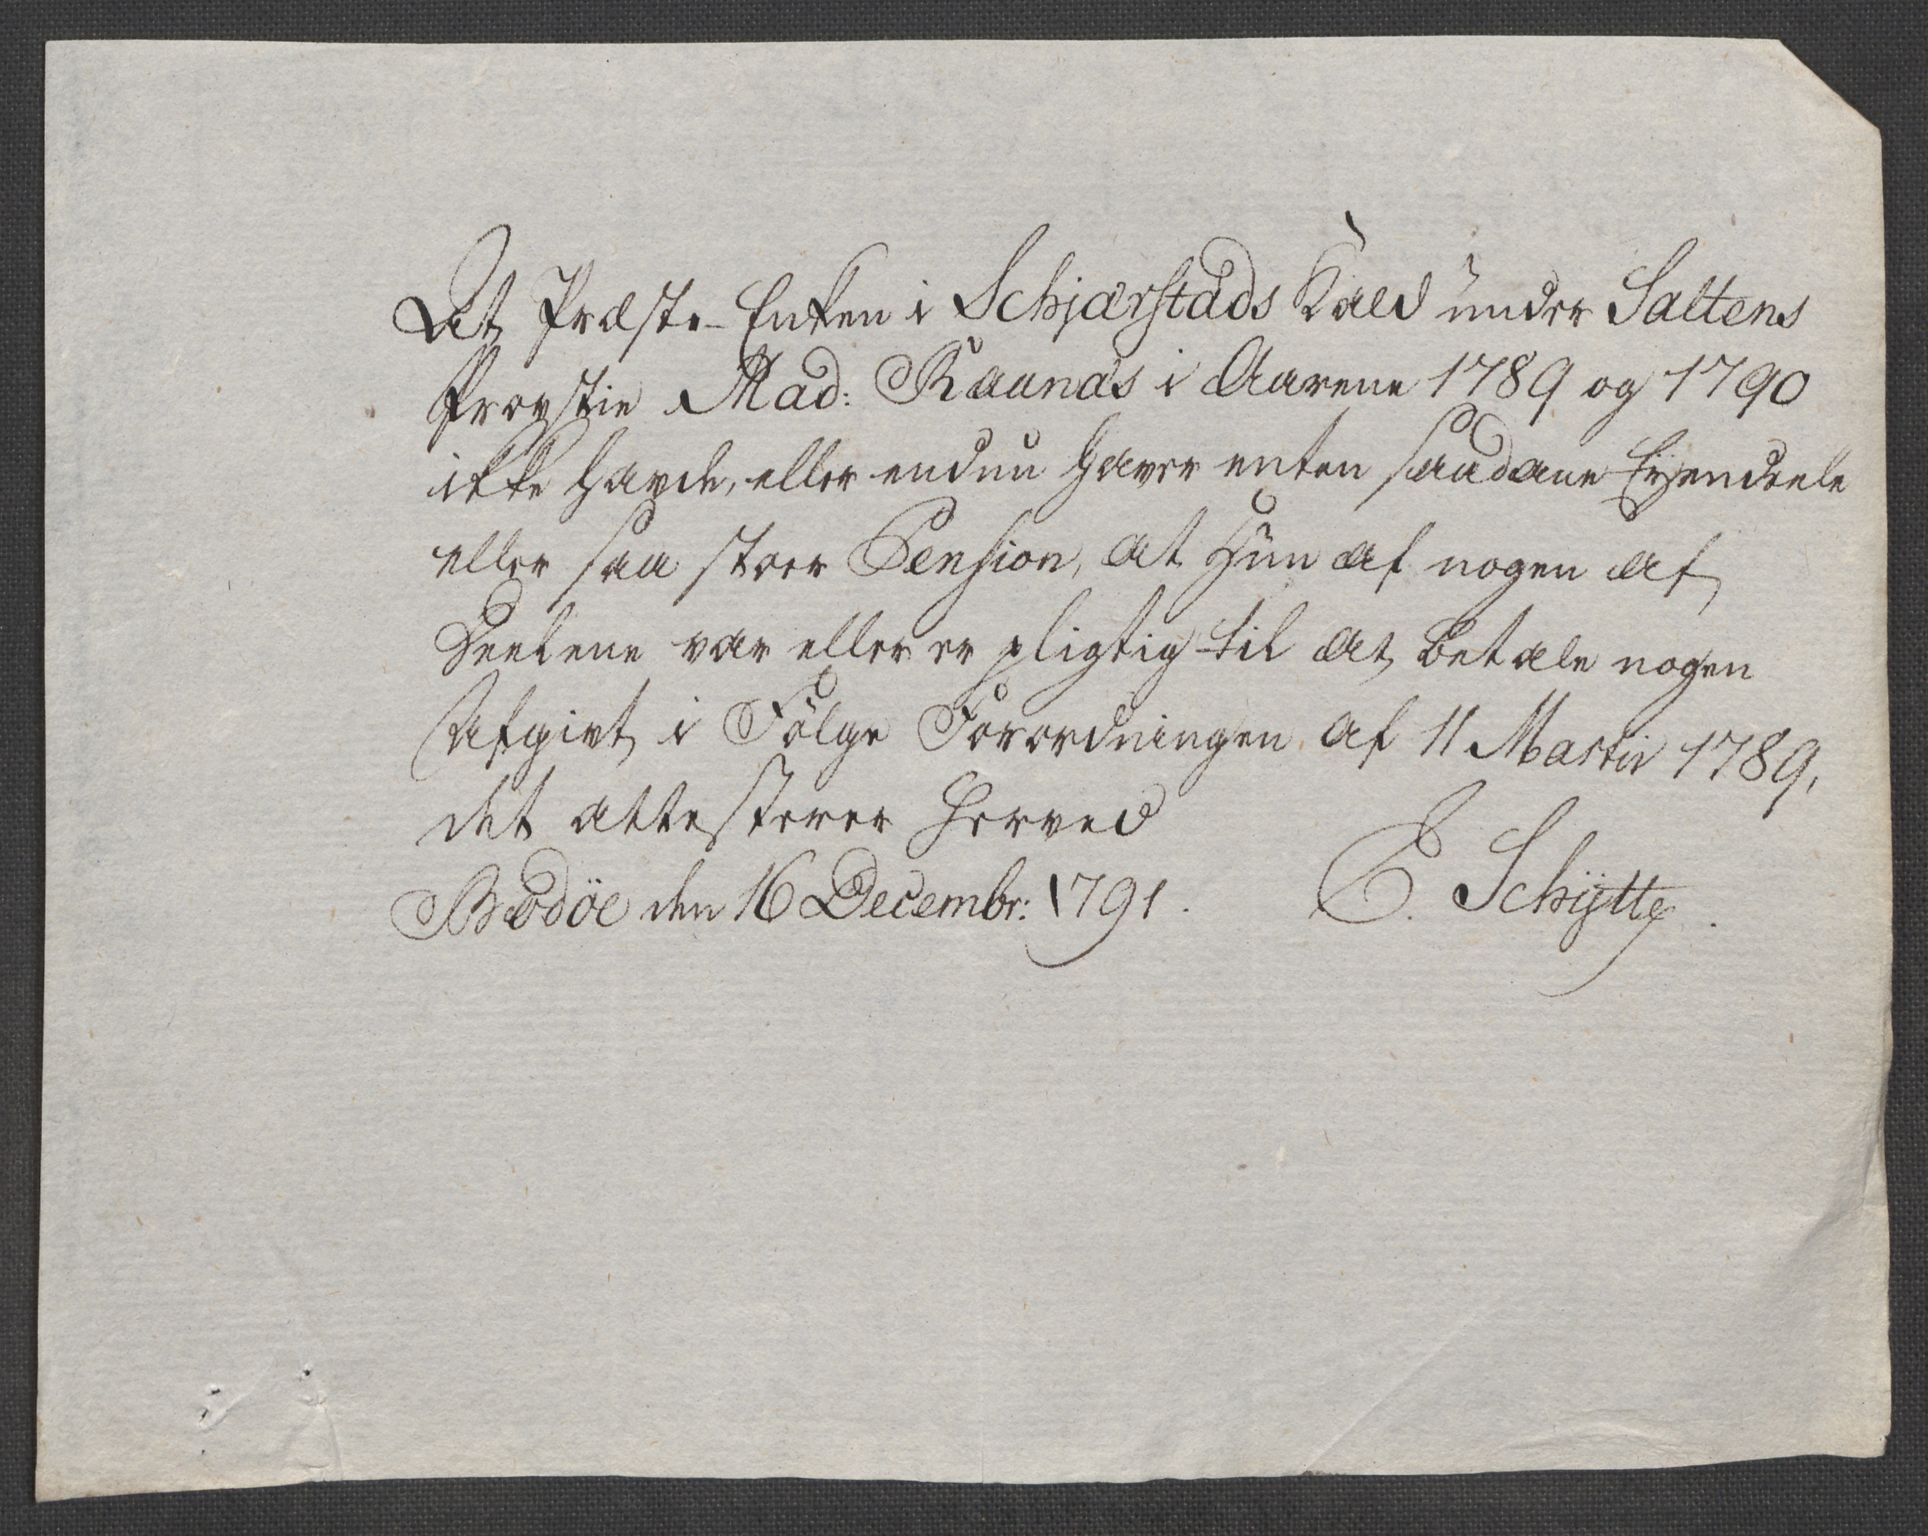 At Præste-Enken i Schjærstads Kald under Saltens
Provstie Mad: Raanaes i Aarene 1789 og 1790
ikke havde, eller endnu haver enten saadane Eiendeele
eller saa stoer Pension, at Hun af nogen af
Deelene var eller er pligtig til at betale nogen
Afgivt i Følge Forordningen af 11 Martii 1789,
det attesterer herved
Bodöe den 16 Decembr: 1791. E. Schÿtte.